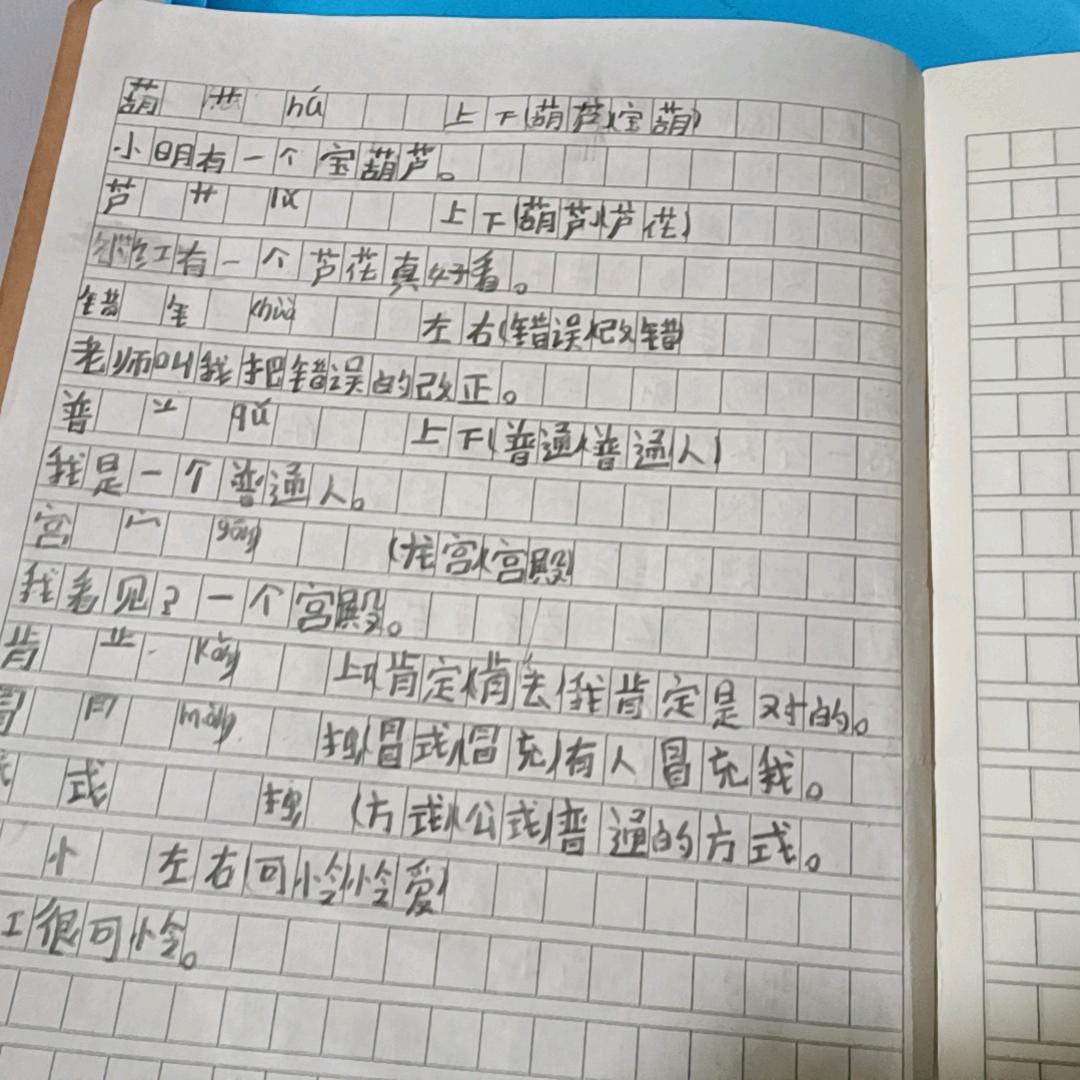 葫 艹 hú 上下(葫芦)(宝葫)
小明有一个宝葫芦。
芦 艹 lú 上下(葫芦)(芦花)
小红有一个芦花真好看。
错 钅 左右(错误)(改错)
老师叫我把错误的改正。
普 qǔ 上下(普通)(普通人)
我是一个普通人。
宫 宀 gōng (龙宫)(宫殿)
我看见了一个宫殿。
肯 kǒng 上(肯定)(肯去)我肯定是对的。
冒 独(冒式)(冒充)有人冒充我。
式 独 (方式)(公式)普通的方式。
忄 左右(可怜)(怜爱)
很可怜。